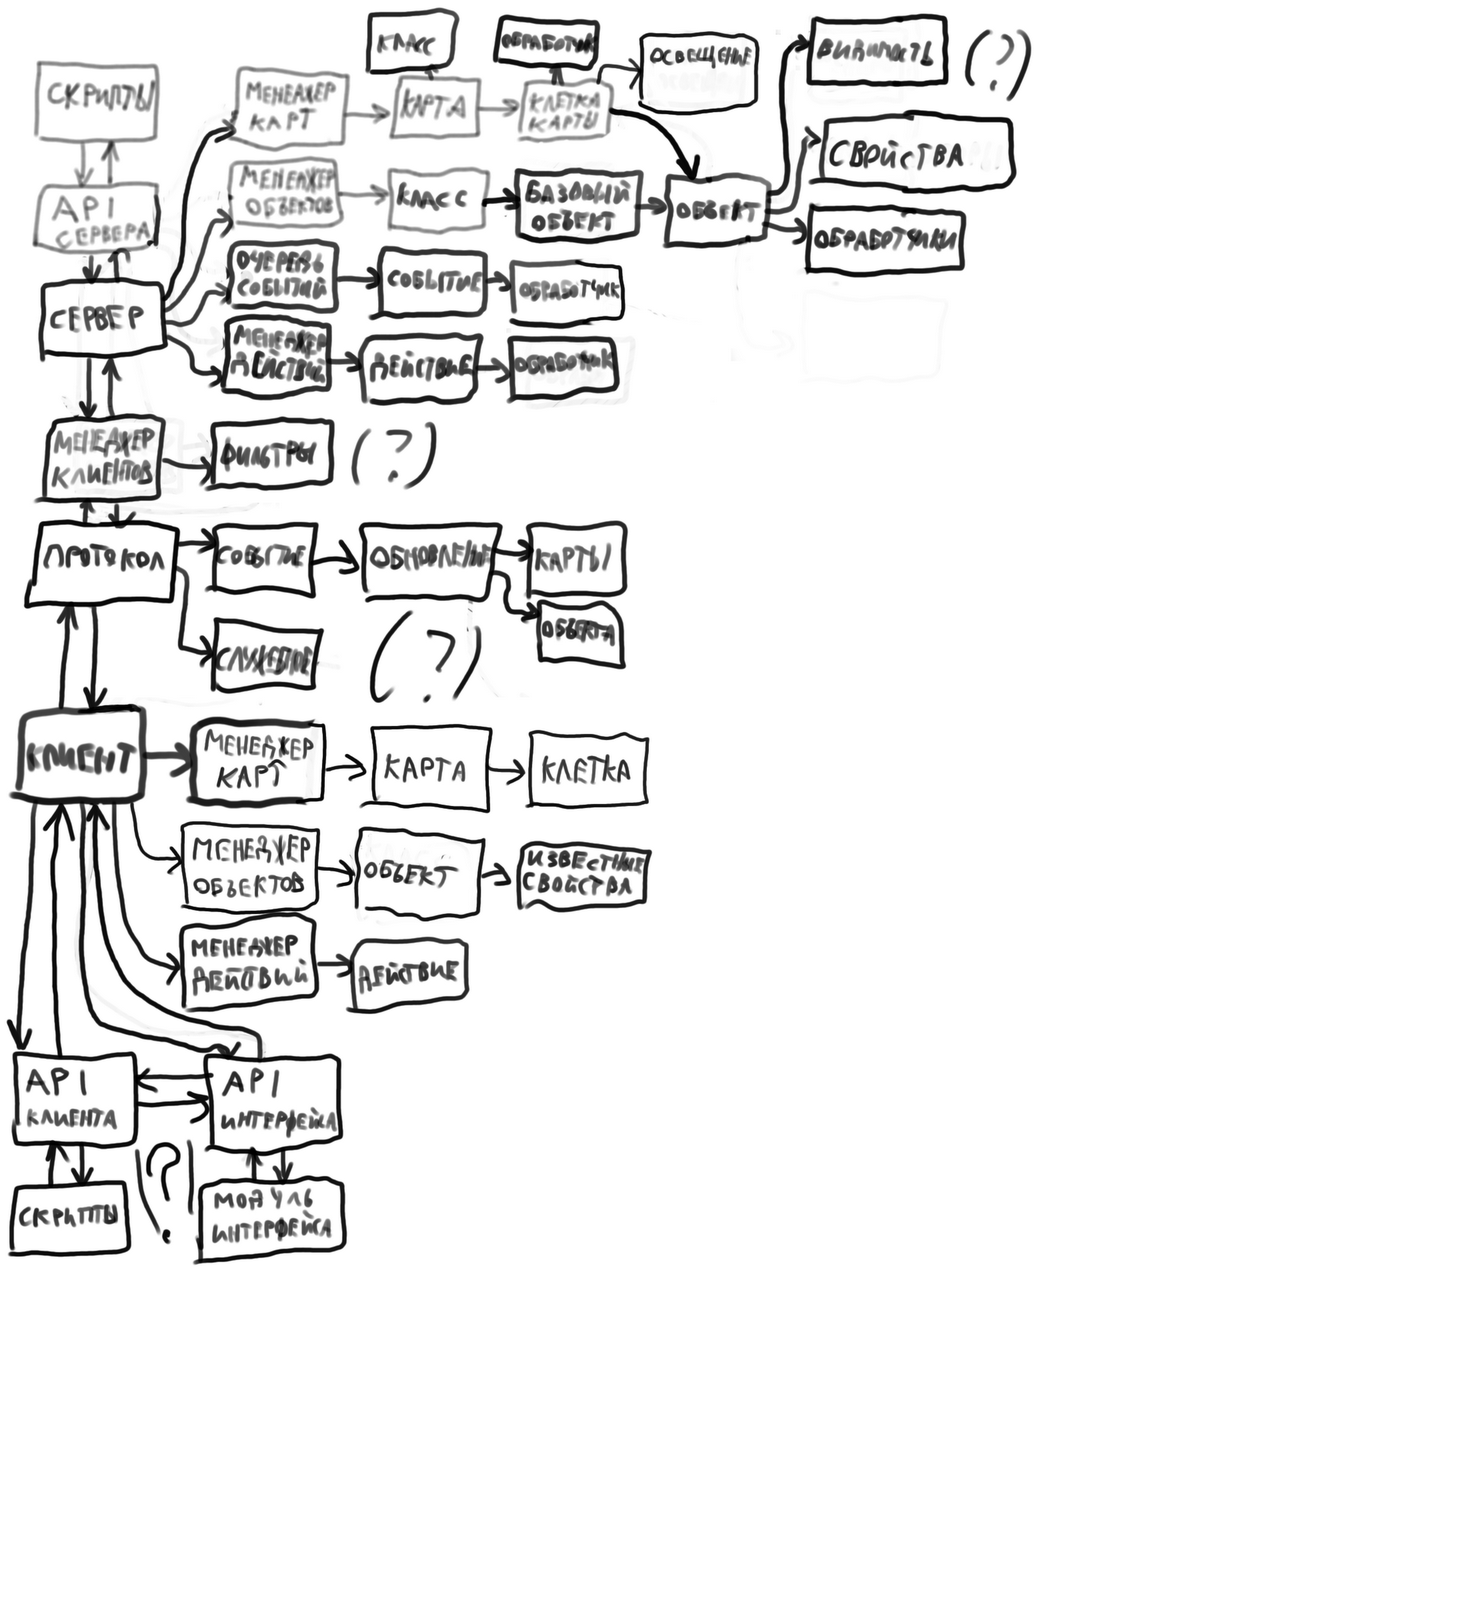 КЛАСС
ОБРАБОТЧИК
ОСВЕЩЕНИЕ
ВИДИМОСТЬ (?)
СКРИПТЫ
МЕНЕДЖЕР
КАРТ
КАРТА
КЛЕТКА
КАРТЫ
СВОЙСТВА
API
СЕРВЕРА
МЕНЕДЖЕР
ОБЪЕКТОВ
КЛАСС
БАЗОВЫЙ
ОБЪЕКТ
ОБЪЕКТ
ОБРАБОТЧИКИ
СЕРВЕР
ОЧЕРЕДЬ
СОБЫТИЙ
СОБЫТИЕ
ОБРАБОТЧИК
МЕНЕДЖЕР
ДЕЙСТВИЙ
ДЕЙСТВИЕ
ОБРАБОТЧИК
МЕНЕДЖЕР
КЛИЕНТОВ
ФИЛЬТРЫ (?)
ПРОТОКОЛ
СОБЫТИЕ
ОБНОВЛЕНИЕ
КАРТЫ
ОБЪЕКТА
(?)
КЛИЕНТ
МЕНЕДЖЕР
КАРТ
КАРТА
КЛЕТКА
МЕНЕДЖЕР
ОБЪЕКТОВ
ОБЪЕКТ
ИЗВЕСТНЫЕ
СВОЙСТВА
МЕНЕДЖЕР
ДЕЙСТВИЙ
ДЕЙСТВИЕ
API
КЛИЕНТА
API
ИНТЕРФЕЙСА
(?)
СКРИПТЫ
МОДУЛЬ
ИНТЕРФЕЙСА